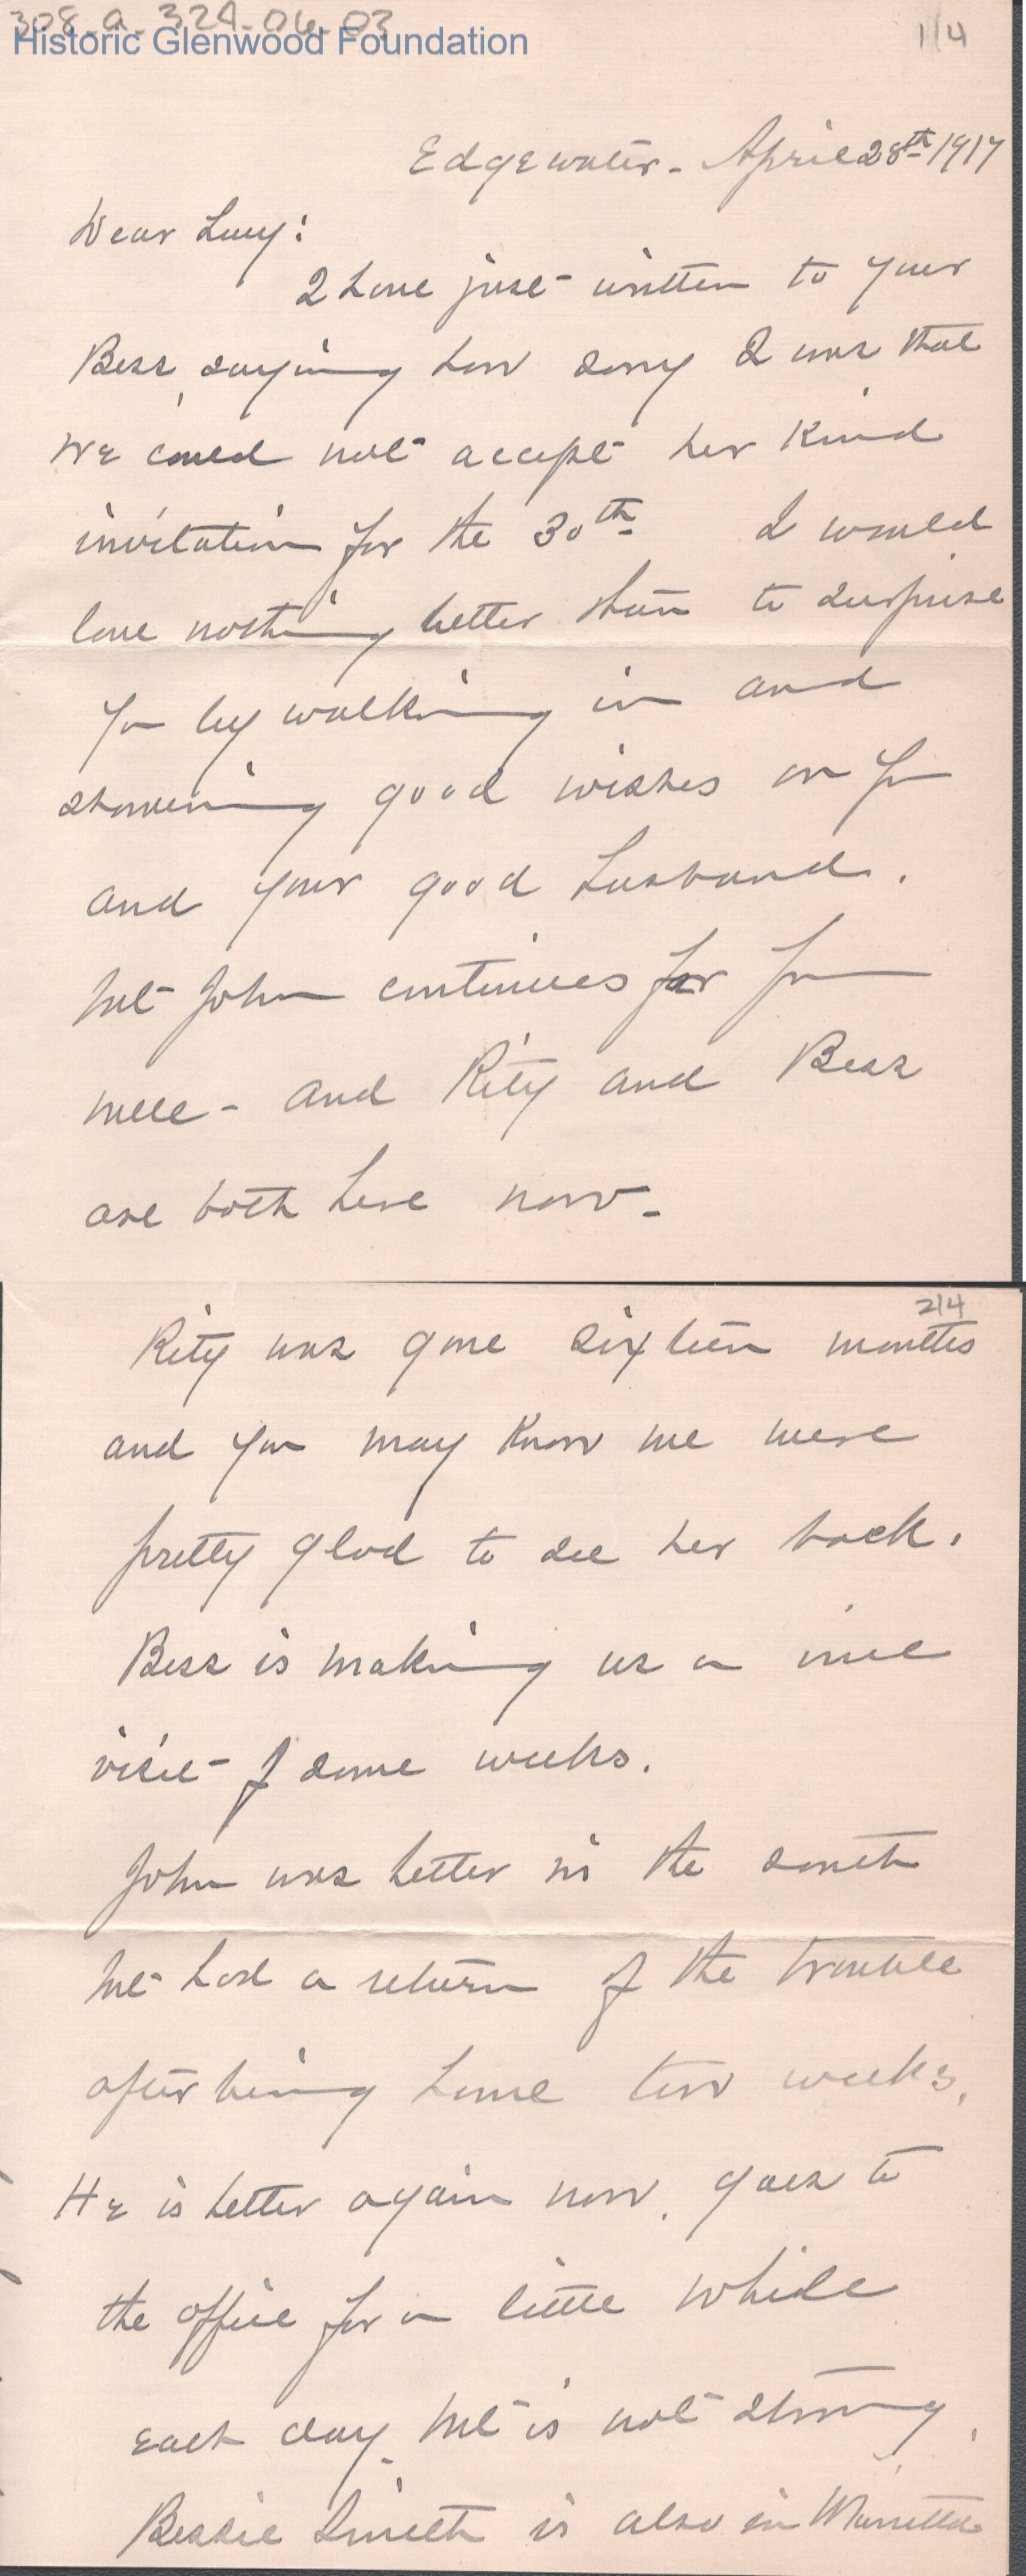 308-a-324-06-03
Historic Glenwood Foundation
1/4
Edgewater - April 28th 1917
Dear Lucy:
I have just written to your
Bess, saying how sorry I was that
we could not accept her kind
invitation for the 30th I would
love nothing better than to surprise
you by walking in and
showering good wishes on you
and your good husband.
but John continues far from
well - and Kity and Bess
are both here now -
2/4
Kity was gone sixteen months
and you may know we were
pretty glad to see her back.
Bess is making us a nice
visit of some weeks.
John was better in the south
but had a return of the trouble
after being home two weeks.
He is better again now, goes to
the office for a little while
each day but is not strong,
Bessie Smith is also in Marietta